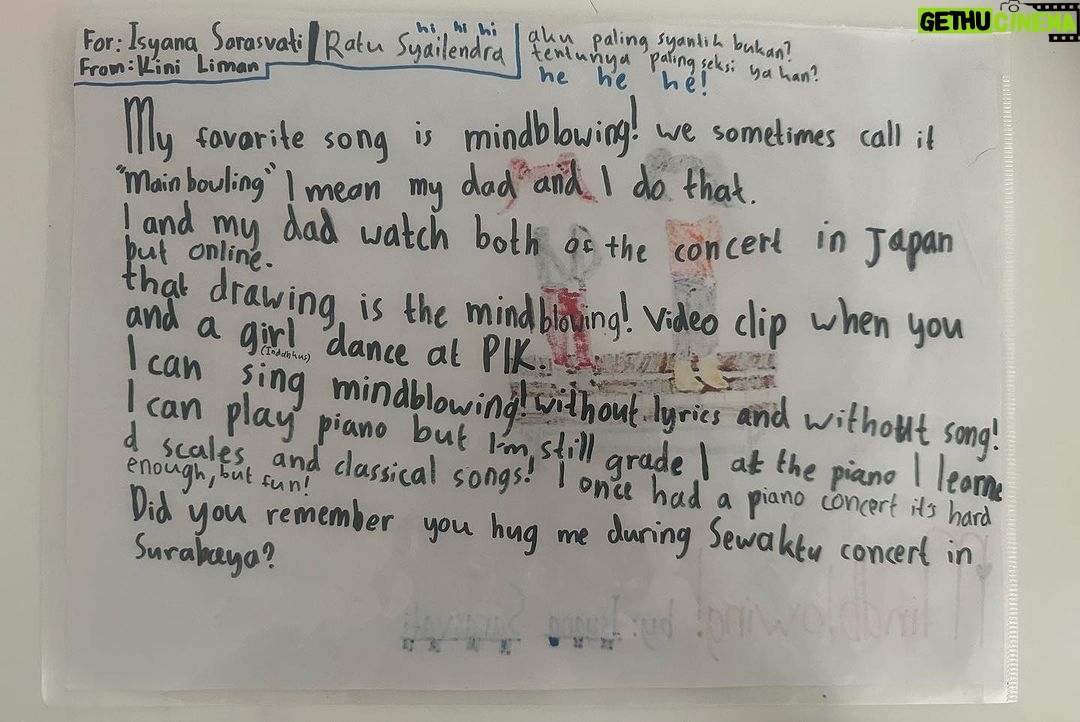 GETHUCINEMA
For: Isyana Sarasvati
From: Kini Liman
hi hi hi
Ratu Syailendra
aku paling syantik bukan?
tentunya paling seksi ya kan?
he he he!
My favorite song is mindblowing! we sometimes call it
"Main bowling" I mean my dad and I do that.
I and my dad watch both of the concert in Japan
but online.
that drawing is the mindblowing! Video clip when you
and a girl dance at PIK.
(Indahkus)
I can sing mindblowing! without lyrics and without song!
I can play piano but I'm still grade 1 at the piano I learne
d scales and classical songs! I once had a piano concert its hard
enough, but fun!
Did you remember you hug me during Sewaktu concert in
Surabaya?
Mindblowing! by: Isyana Sarasvati